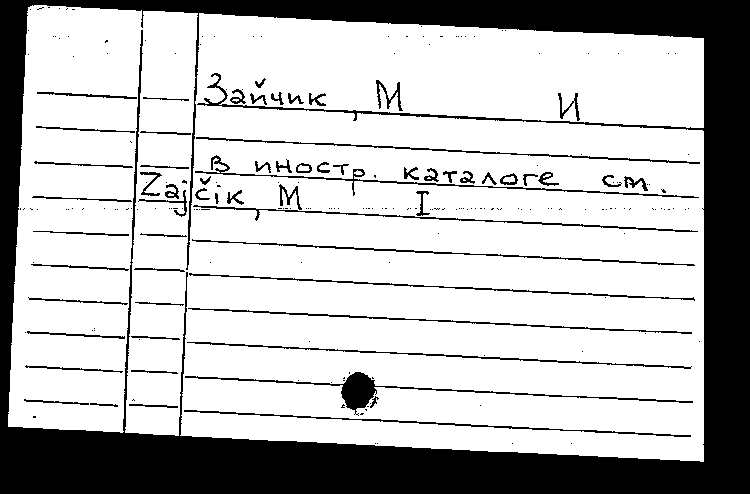 Зайчик, М И
в иностр. каталоге см.
Zajčik, M I